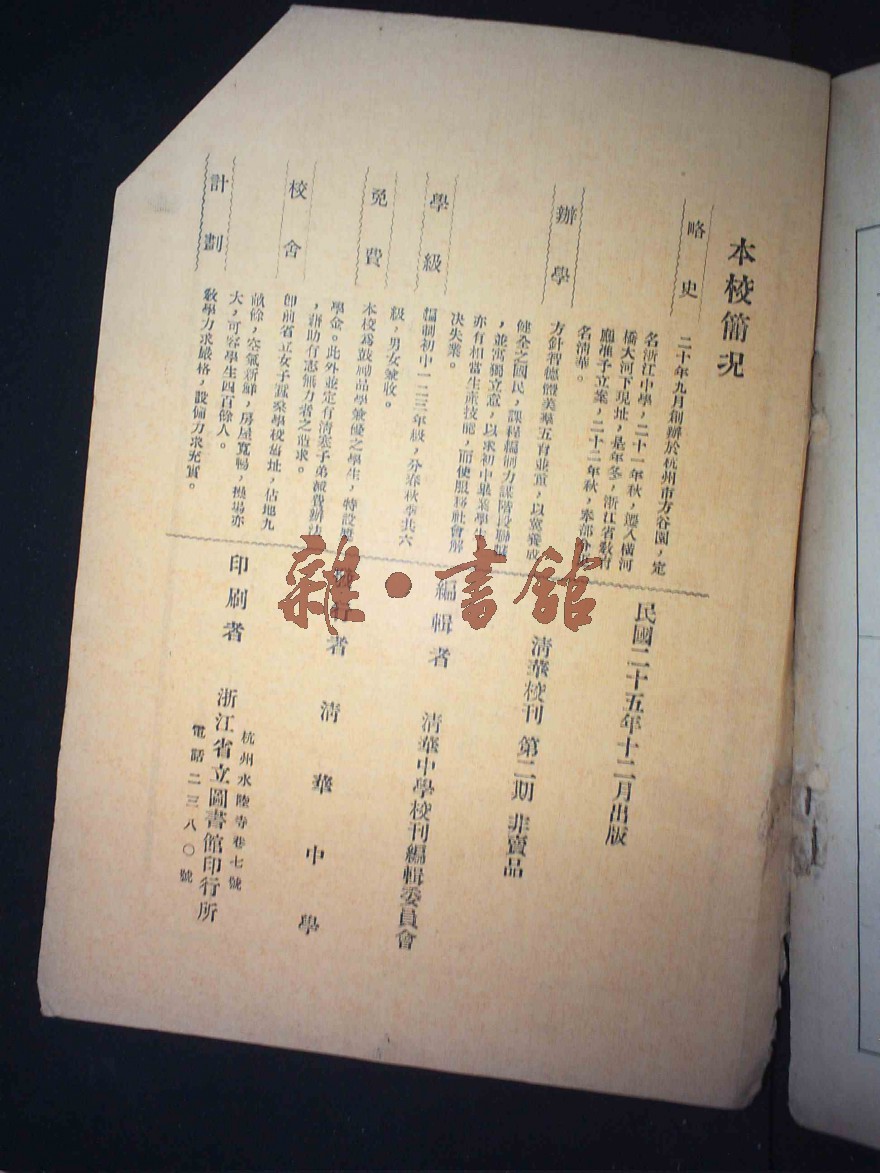 本校簡況
略史
二十年九月創辦於杭州市方谷園，定
名浙江中學，二十一年秋，遷入橫河
橋大河下現址，是年冬，浙江省教育
廳准予立案，二十二年秋，奉部令
名清華。
辦學
方針智德體美羣五育並重，以冀養成
健全之國民，課程編制力謀階段聯
，並寓獨立意，以求初中畢業學生
亦有相當生產技能，而使服務社會解
决失業。
學級
編制初中一二三年級，分春秋季共六
級，男女兼收。
免費
本校為鼓勵品學兼優之學生，特設
學金。此外並定有清寒子弟減費辦法
，藉助有志無力者之
求。
校舍
即前省立女子蠶桑學校舊址，佔地九
畝餘，空氣新鮮，房屋寬暢，操場亦
大，可容學生四百餘人。
計劃
教學力求嚴格，設備力求充實。
民國二十五年十二月出版
清華校刊 第二期 非賣品
編輯者 清華中學校刊編輯委員會
發行者 清華中學
印刷者 浙江省立圖書館印行所
杭州水陸寺巷七號
電話二三八〇號
雜·書館